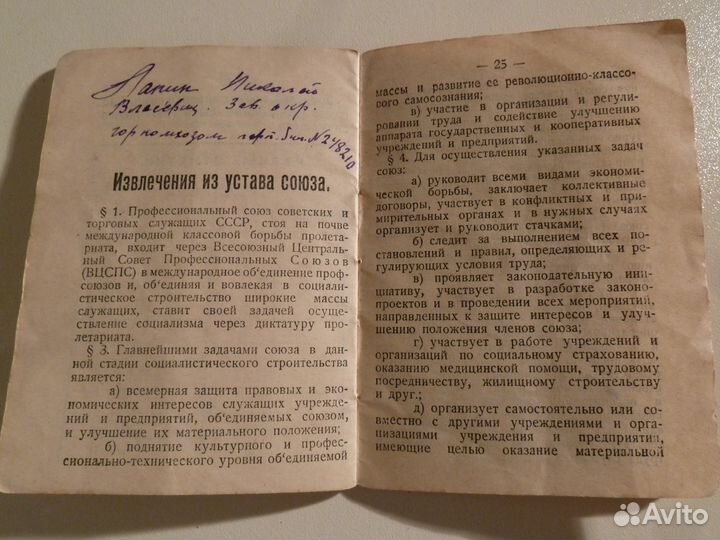 Лапин Николай
Власевич. Зав. окр.
горкомхозом парт. бил. № 248210
Извлечения из устава союза.
§ 1. Профессиональный союз советских и
торговых служащих СССР, стоя на почве
международной классовой борьбы пролета-
риата, входит через Всесоюзный Централь-
ный Совет Профессиональных Союзов
(ВЦСПС) в международное об'единение проф-
союзов и, об'единяя и вовлекая в социали-
стическое строительство широкие массы
служащих, ставит своей задачей осуще-
ствление социализма через диктатуру про-
летариата.
§ 3. Главнейшими задачами союза в дан-
ной стадии социалистического строительства
является:
а) всемерная защита правовых и эко-
номических интересов служащих учрежде-
ний и предприятий, об'единяемых союзом,
и улучшение их материального положения;
б) поднятие культурного и профес-
сионально-технического уровня об'единяемой
— 25 —
массы и развитие ее революционно-классо-
вого самосознания;
в) участие в организации и регули-
ровании труда и содействие улучшению
аппарата государственных и кооперативных
учреждений и предприятий.
§ 4. Для осуществления указанных задач
союз:
а) руководит всеми видами экономи-
ческой борьбы, заключает коллективные
договоры, участвует в конфликтных и при-
мирительных органах и в нужных случаях
организует и руководит стачками;
б) следит за выполнением всех по-
становлений и правил, определяющих и ре-
гулирующих условия труда;
в) проявляет законодательную ини-
циативу, участвует в разработке законо-
проектов и в проведении всех мероприятий,
направленных к защите интересов и улуч-
шению положения членов союза;
г) участвует в работе учреждений и
организаций по социальному страхованию,
оказанию медицинской помощи, трудовому
посредничеству, жилищному строительству
и друг.;
д) организует самостоятельно или со-
вместно с другими учреждениями и орга-
низациями учреждения и предприятия,
имеющие целью оказание материальной
Avito